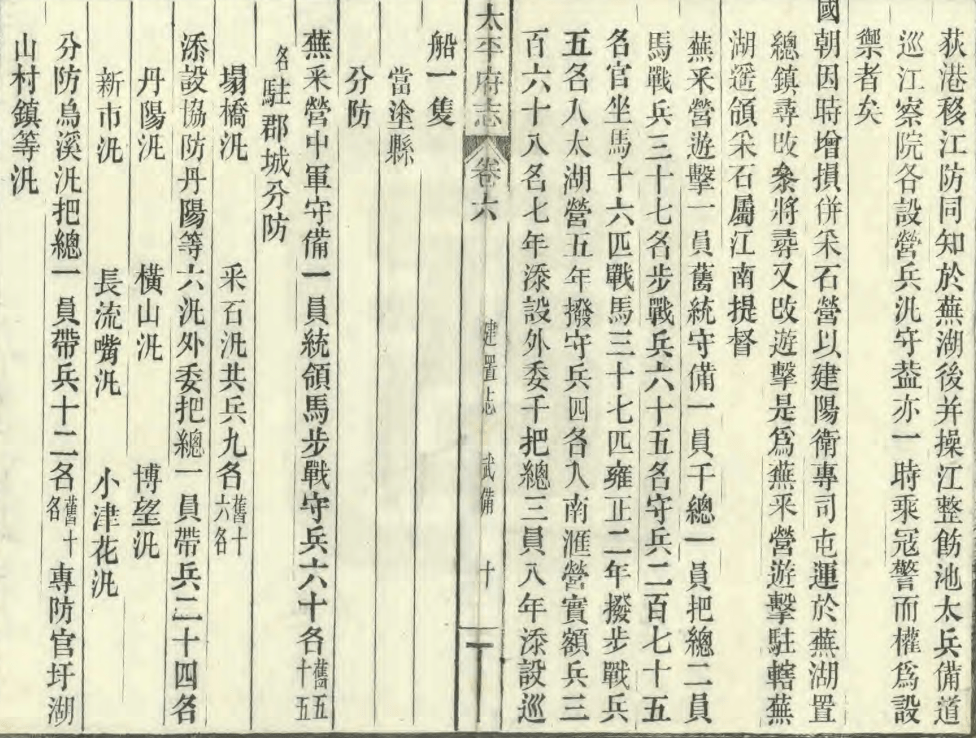 荻港移江防同知於蕪湖後并操江整飭池太兵備道
巡江察院各設營兵汛守葢亦一時乘寇警而權爲設
禦者矣
國朝因時增損併采石營以建陽衛專司屯運於蕪湖置
總鎮尋改叅將尋又改遊擊是爲蕪采營遊擊駐轄蕪
湖遥領采石屬江南提督
蕪采營遊擊一員舊統守備一員千總一員把總二員
馬戰兵三十七名步戰兵六十五名守兵二百七十五
名官坐馬十六匹戰馬三十七匹雍正二年撥步戰兵
五名入太湖營五年撥守兵四名入南滙營實額兵三
百六十八名七年添設外委千把總三員八年添設巡
太平府志 卷六 建置志 武備 十
船一隻
當塗縣
分防
蕪采營中軍守備一員統領馬步戰守兵六十名舊五十五
名駐郡城分防
塌橋汛 采石汛共兵九名舊十六名
添設協防丹陽等六汛外委把總一員帶兵二十四名
丹陽汛 橫山汛 博望汛
新市汛 長流嘴汛 小津花汛
分防烏溪汛把總一員帶兵十二名舊十名專防官圩湖
山村鎮等汛